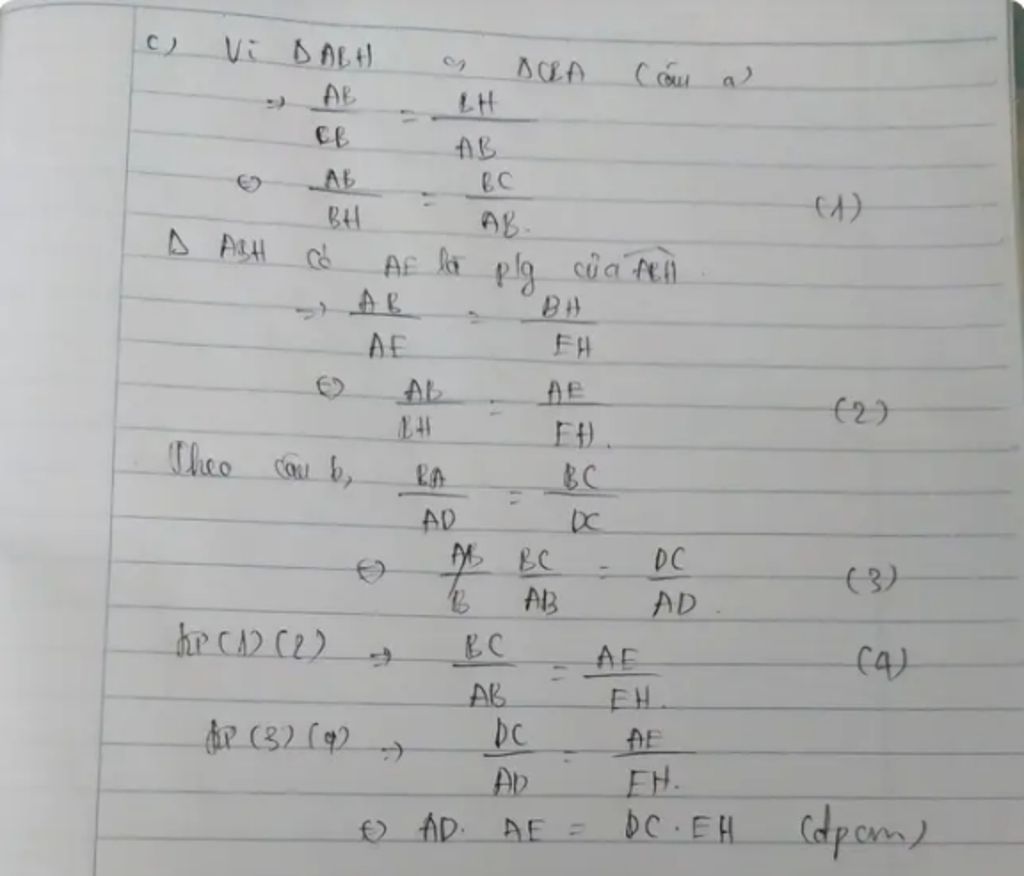 c) Vì Δ ABH ∽ ΔCBA (câu a)
⇒ AB/CB = BH/AB
⇔ AB/BH = BC/AB. (1)
Δ ABH có AE là p/g của ABH.
⇒ AB/AE = BH/EH
⇔ AB/BH = AE/EH. (2)
Theo câu b, BA/AD = BC/DC
⇔ BC/AB = DC/AD. (3)
KP (1) (2) ⇒ BC/AB = AE/EH. (4)
KP (3) (4) ⇒ DC/AD = AE/EH.
⇔ AD. AE = DC . EH (đpcm)